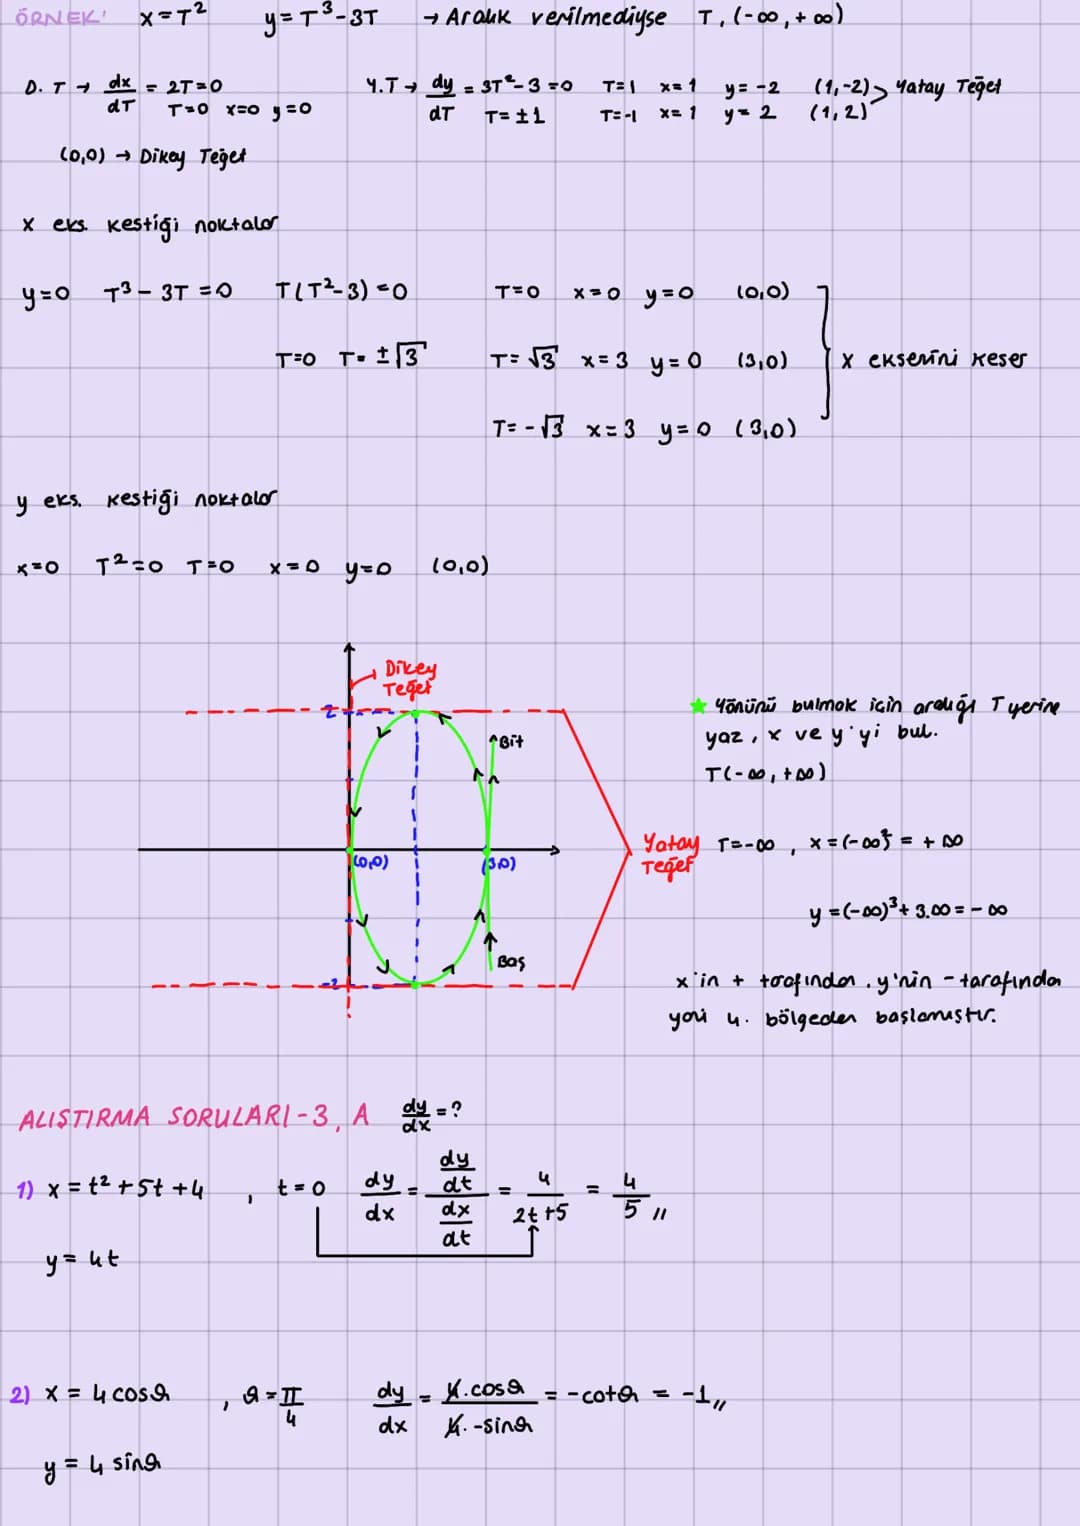 ÖRNEK: x=T² y=T³-3T → Aralık verilmediyse T, (-∞,+∞)
D.T → dx/dT = 2T=0 Y.T → dy/dT = 3T²-3=0 T=1 x=1 y=-2 (1,-2) > Yatay Teğet
T=0 x=0 y=0 T=±1 T=-1 x=1 y=2 (1,2)
(0,0) → Dikey Teğet
x eks. kestiği noktalar
y=0 T³-3T=0 T(T²-3)=0 T=0 x=0 y=0 (0,0)
T=0 T=±√3 T=√3 x=3 y=0 (3,0) x eksenini keser
T=-√3 x=3 y=0 (3,0)
y eks. kestiği noktalar
x=0 T²=0 T=0 x=0 y=0 (0,0)
→ Dikey
Teğet
2
Bit
(0,0)
(3,0)
Baş
-2
Yatay
Teğet
★ Yönünü bulmak için aralığı T yerine
yaz, x ve y'yi bul.
T(-∞,+∞)
T=-∞, x=(-∞)² = +∞
y=(-∞)³+3.∞=-∞
x'in + tarafından, y'nin - tarafından
yani 4. bölgeden başlamıştır.
ALIŞTIRMA SORULARI-3, A dy/dx=?
1) x=t²+5t+4, t=0 dy/dx = (dy/dt)/(dx/dt) = 4/(2t+5) = 4/5 //
y=4t
2) x=4cosθ, θ=π/4 dy/dx = 4.cosθ/4.-sinθ = -cotθ = -1 //
y=4sinθ